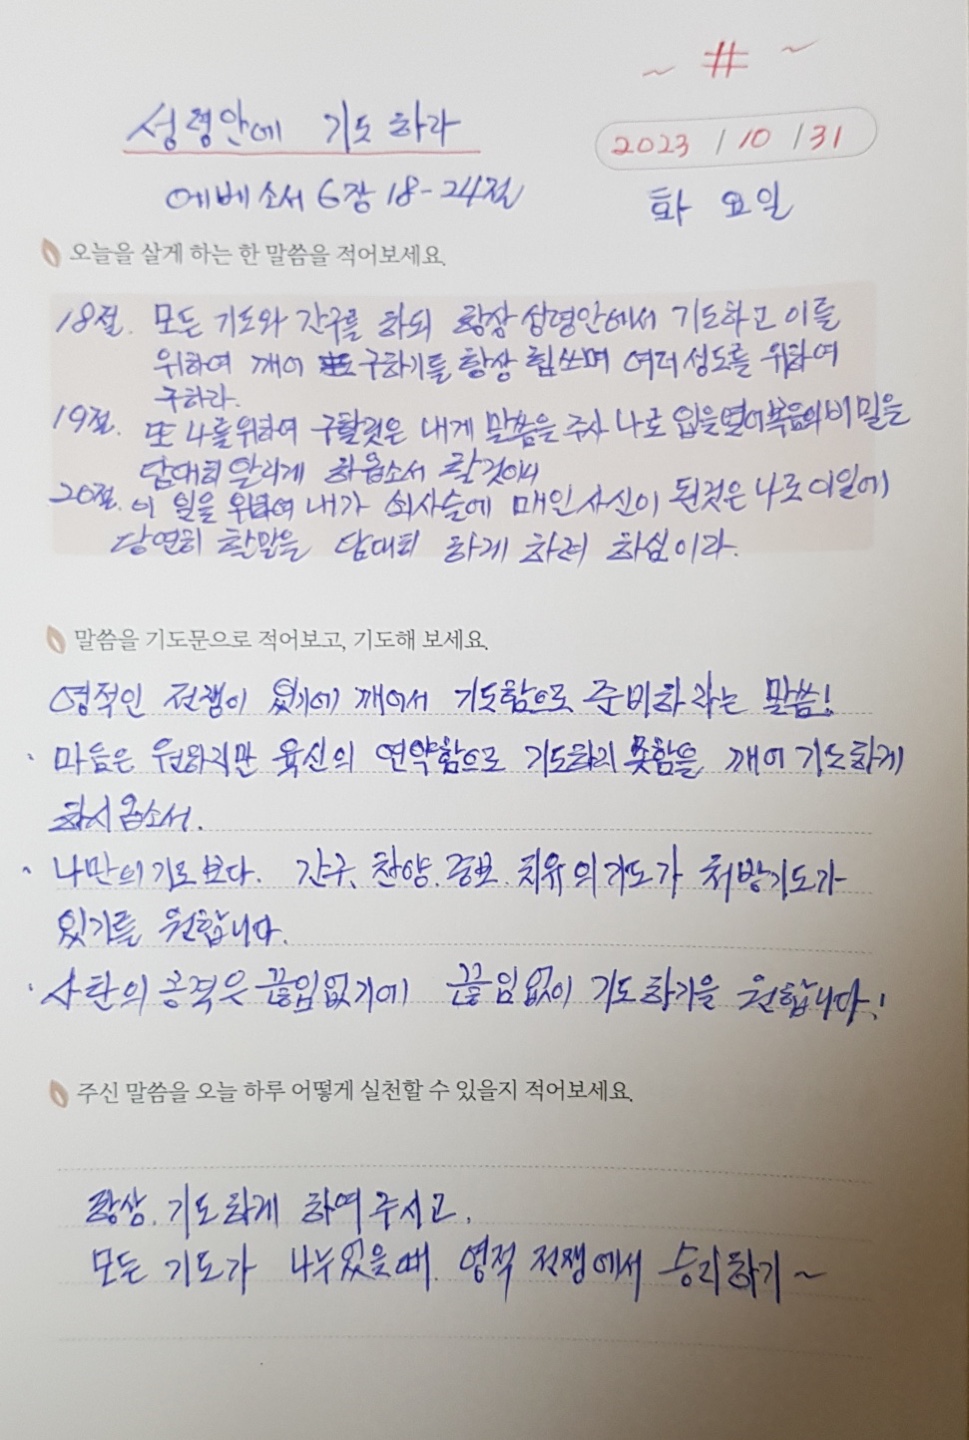 ~ # ~
성령안에 기도하라
2023 / 10 / 31
에베소서 6장 18-24절
화요일
오늘을 살게 하는 한 말씀을 적어보세요.
18절. 모든 기도와 간구를 하되 항상 성령안에서 기도하고 이를
위하여 깨어 구하기를 항상 힘쓰며 여러 성도를 위하여
구하라.
19절. 또 나를 위하여 구할것은 내게 말씀을 주사 나로 입을 열어 복음의 비밀을
담대히 알리게 하옵소서 할것이니
20절. 이 일을 위하여 내가 쇠사슬에 매인 사신이 된것은 나로 이일에
당연히 할말을 담대히 하게 하려 하심이라.
말씀을 기도문으로 적어보고, 기도해 보세요.
영적인 전쟁이 있기에 깨어서 기도함으로 준비하라는 말씀!
· 마음은 원하지만 육신의 연약함으로 기도하지 못함을 깨어 기도하게
하시옵소서.
· 나만의 기도보다. 간구, 찬양, 중보, 치유의 기도가
있기를 원합니다.
· 사탄의 공격은 끊임없기에 끊임없이 기도하기을 원합니다!
주신 말씀을 오늘 하루 어떻게 실천할 수 있을지 적어보세요.
항상. 기도하게 하여주시고.
모든 기도가 나누있을때. 영적 전쟁에서 승리하기~